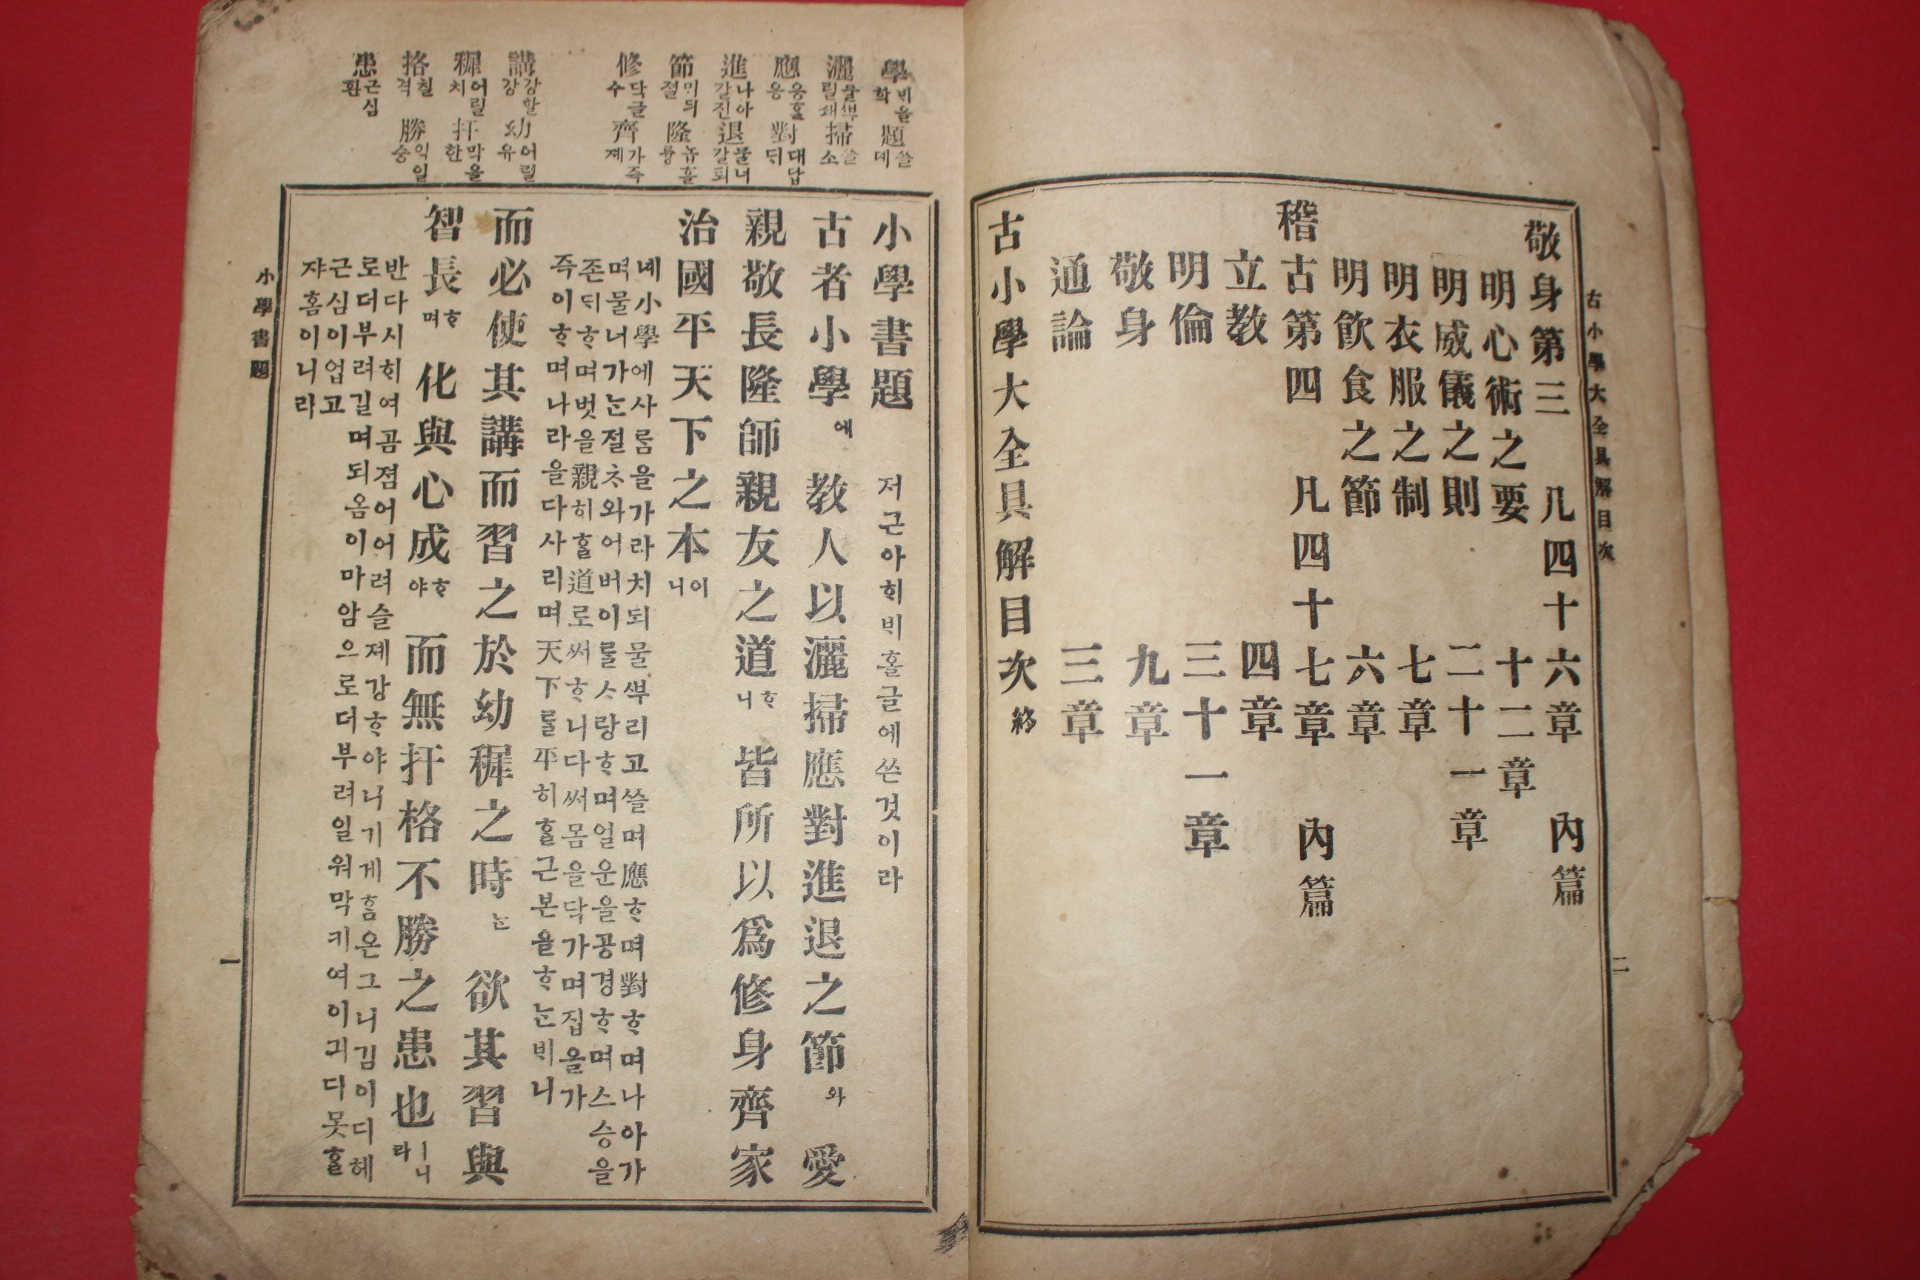 古小學大全具解目次
二
敬身第三 凡四十六章 內篇
明心術之要 十二章
明威儀之則 二十一章
明衣服之制 七章
明飮食之節 六章
稽古第四 凡四十七章 內篇
立敎 四章
明倫 三十一章
敬身 九章
通論 三章
古小學大全具解目次 終
學 ᄇᆡ을 학 題 쓸 뎨
灑 물ᄲᅮ릴 쇄 掃 쓸 소
應 응ᄒᆞᆯ 응 對 대답 ᄃᆡ
進 나아갈 진 退 물너갈 퇴
節 ᄆᆞᄃᆡ 졀 隆 놉흘 륭
修 닥글 수 齊 가즉 졔
講 강할 강 幼 어릴 유
穉 어릴 치 扞 막을 한
挌 칠 격 勝 익일 승
患 근심 환
小學書題 저근아ᄒᆡᄇᆡ홀글에쓴것이라
古者小學에 敎人以灑掃應對進退之節와 愛
親敬長隆師親友之道ᄒᆞ니 皆所以爲修身齊家
治國平天下之本이니
녜小學에사ᄅᆞᆷ을가라치되물ᄲᅮ리고쓸며應ᄒᆞ며對ᄒᆞ며나아가
며물너가ᄂᆞᆫ절ᄎᆞ와어버이ᄅᆞᆯᄉᆞ랑ᄒᆞ며얼운을공경ᄒᆞ며스승을
존ᄃᆡᄒᆞ며벗을親히ᄒᆞᆯ道로써ᄒᆞ니다써몸을닥가며집을가
즉이ᄒᆞ며나라을다사리며天下ᄅᆞᆯ平히ᄒᆞᆯ근본을ᄒᆞᄂᆞᆫᄇᆡ니
而必使其講而習之於幼穉之時ᄂᆞᆫ 欲其習與
智長ᄒᆞ며 化與心成ᄒᆞ야 而無扞格不勝之患也ㅣ니라
반다시ᄒᆡ여곰졈어어려슬졔강ᄒᆞ야니기게홈은그니김이디혜
로더부려길며되옴이마암으로더부려일워막키여이긔디못ᄒᆞᆯ
근심이업고
쟈홈이니라
小學書題
一